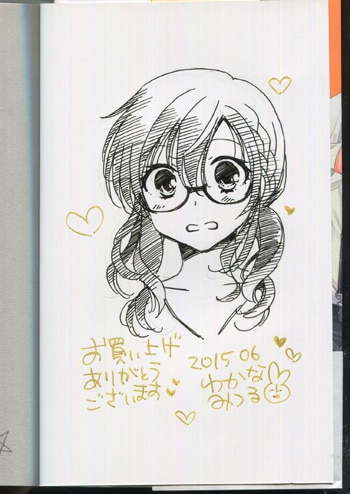 お買い上げ
ありがとう
ございます
2015 06
わかな
みつる